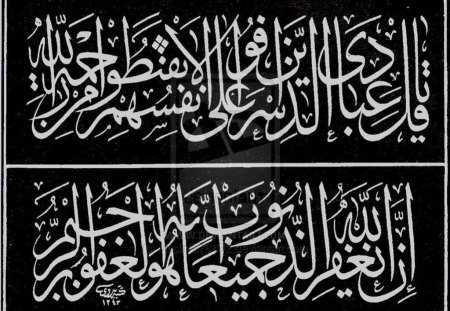 قل يعبادي الذين اسرفوا على انفسهم لا تقنطوا من رحمة الله
إنّ الله يغفر الذّنوب جميعا إنّه هو الغفور الرحيم